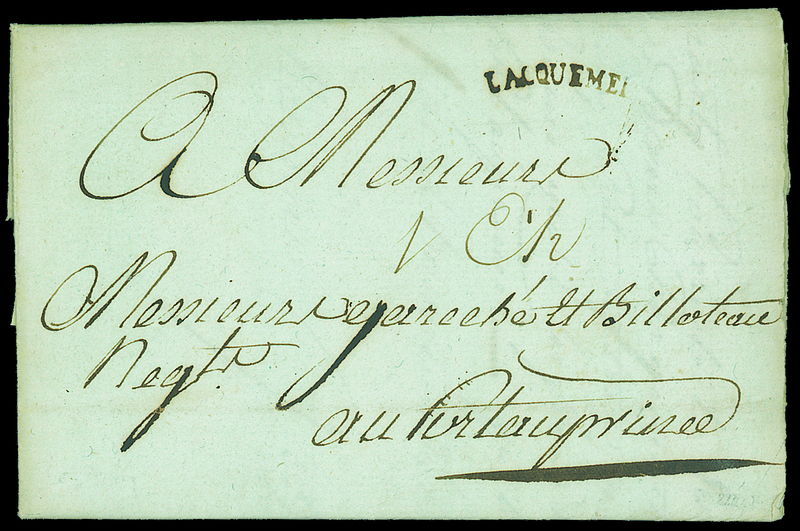 JACQUEMEL
A Messieurs
Messieurs gareché Et Billoteau
Negts
au Portauprince